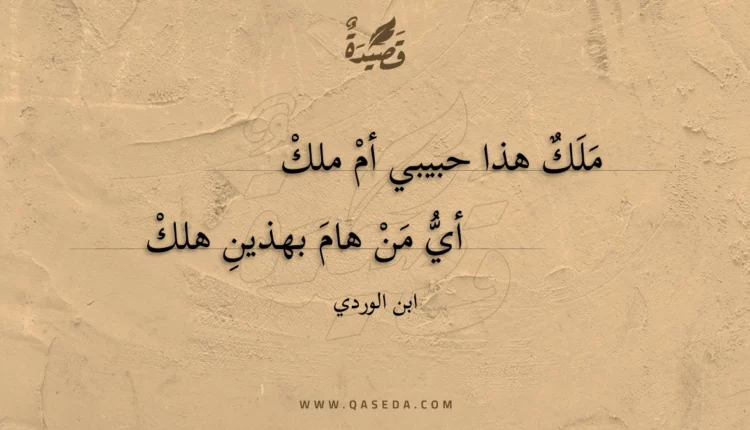 قَصِيْدَةٌ
مَلَكٌ هذا حبيبي أمْ ملكْ
أيُّ مَنْ هامَ بهذينِ هلكْ
ابن الوردي
WWW.QASEDA.COM